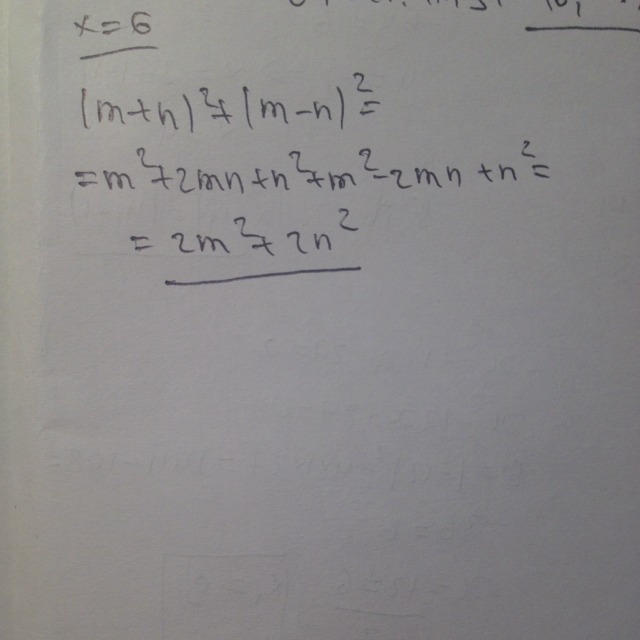 x=6
(m+n)²+(m-n)²=
=m²+2mn+n²+m²-2mn+n²=
=2m²+2n²